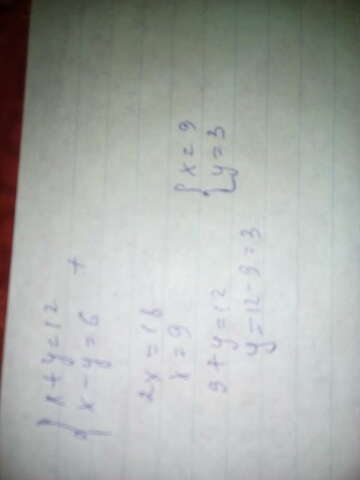 { x + y = 12
{ x - y = 6 +
2x = 18
x = 9
9 + y = 12
y = 12 - 9 = 3
{ x = 9
{ y = 3